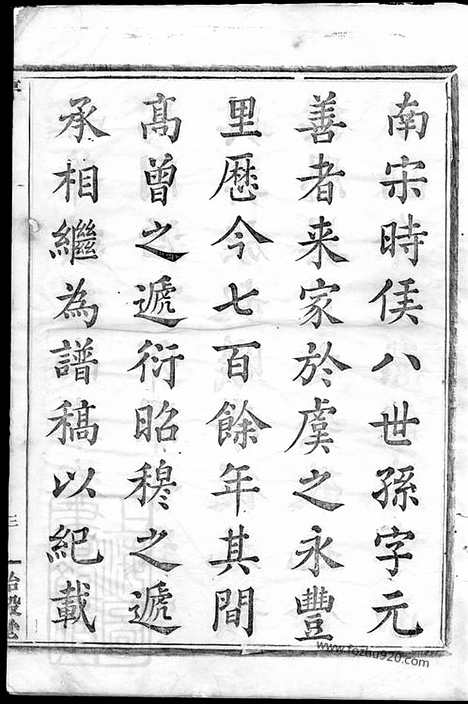 南宋時侯八世孫字元
善者来家於虞之永豐
里歷今七百餘年其間
髙曾之遞衍昭穆之遞
承相繼為譜稿以紀載
三
www.fozhu920.com